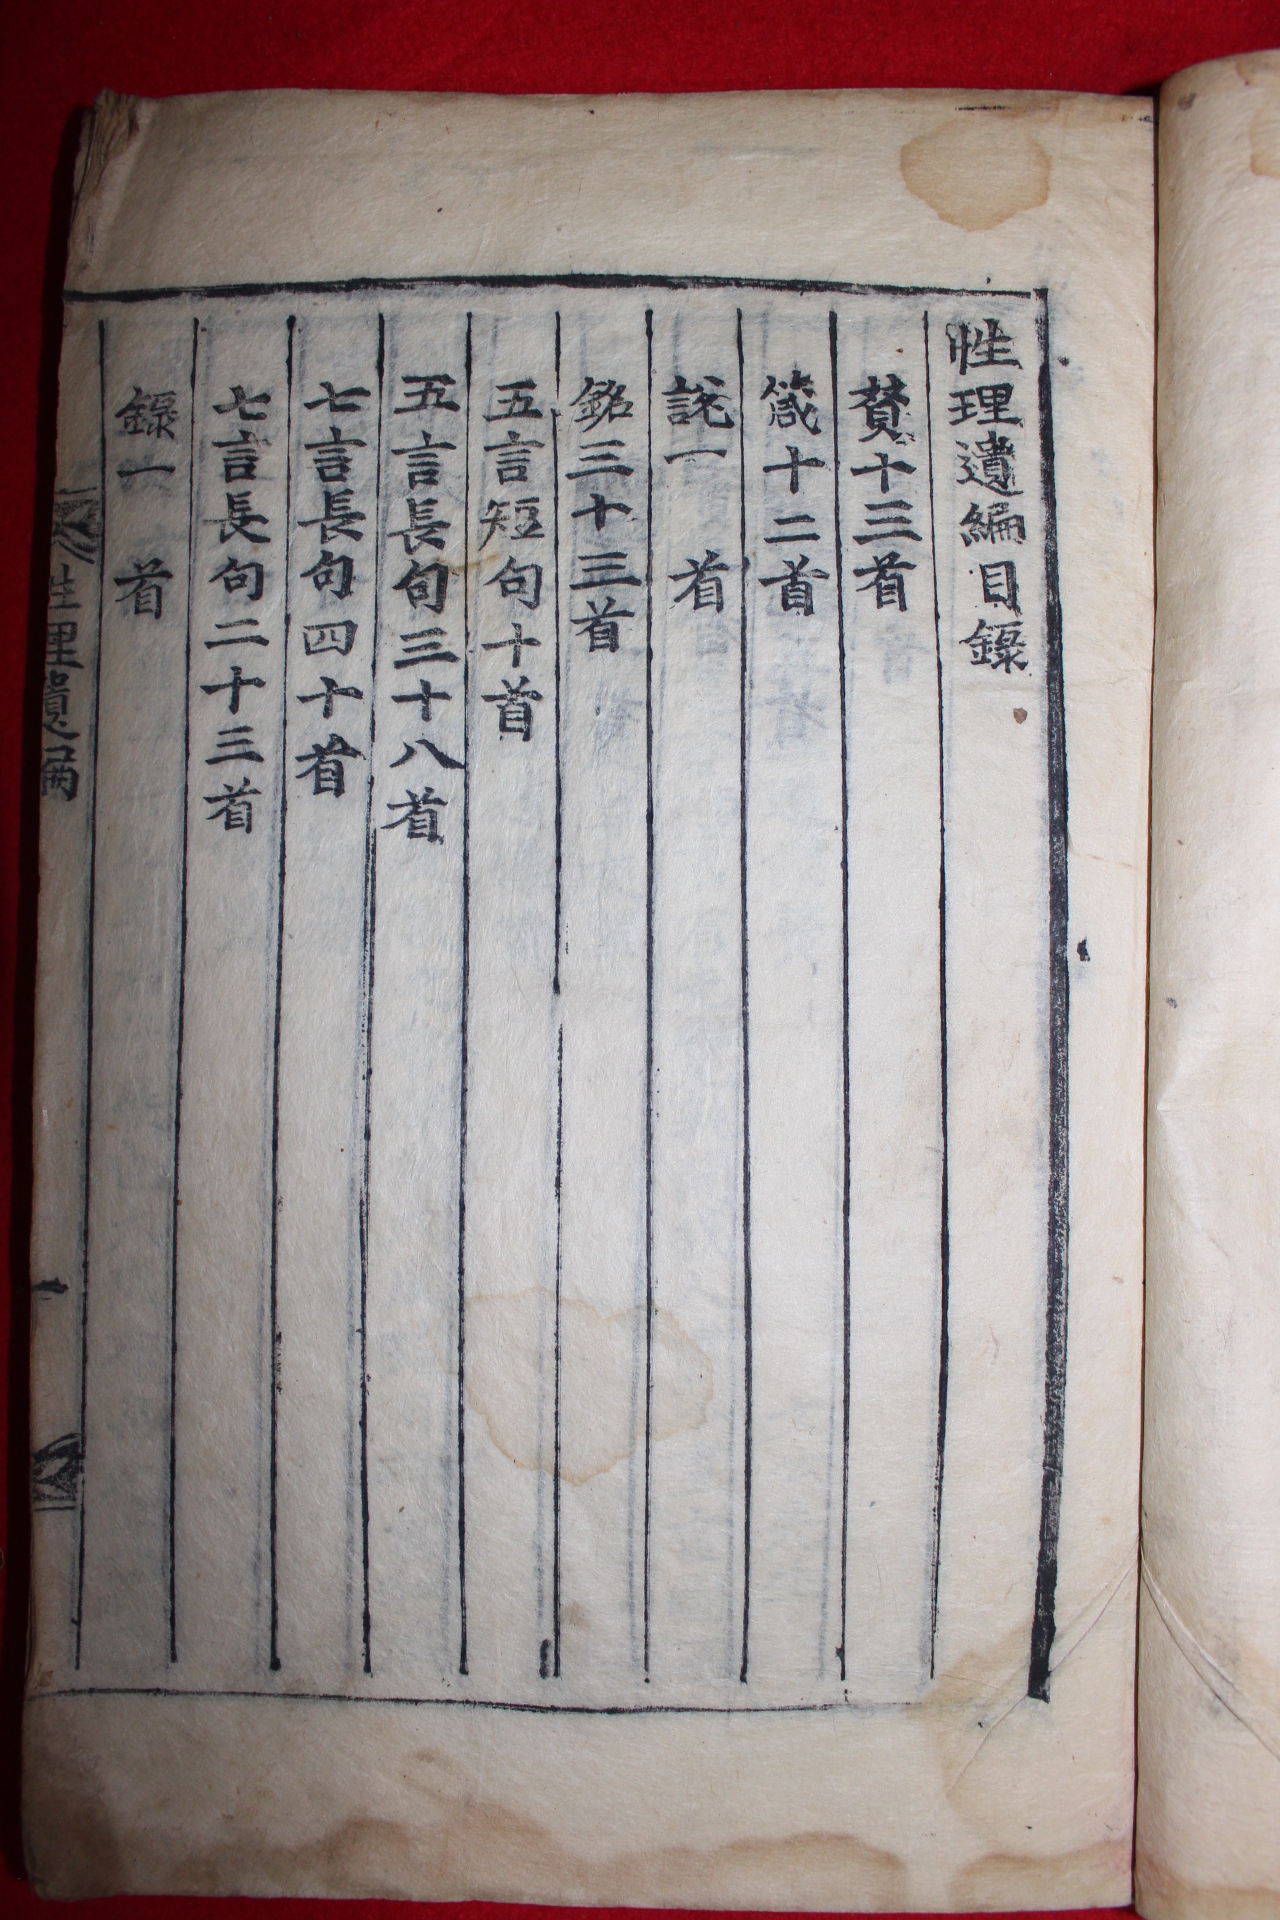 性理遺編目錄
贅十三首
箴十二首
說一首
銘三十三首
五言短句十首
五言長句三十八首
七言長句四十首
七言長句二十三首
錄一首
性理遺編
一